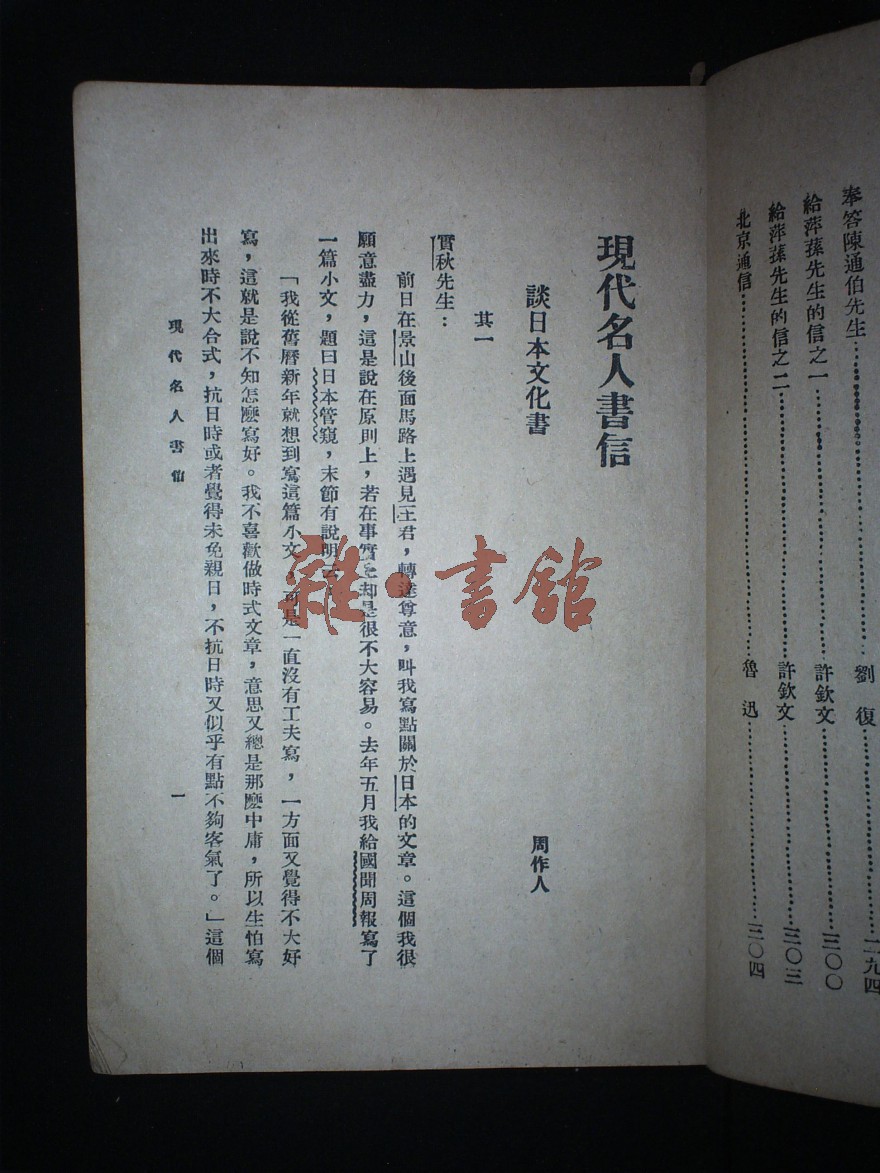 奉答陳通伯先生……………………劉復……………………二九四
給萍蓀先生的信之一……………………許欽文……………………三〇〇
給萍蓀先生的信之二……………………許欽文……………………三〇三
北京通信……………………魯迅……………………三〇四
現代名人書信
談日本文化書 周作人
其一
實秋先生：
前日在景山後面馬路上遇見王君，轉達尊意，叫我寫點關於日本的文章。這個我很
願意盡力，這是說在原則上，若在事實上却是很不大容易。去年五月我給國聞周報寫了
一篇小文，題曰日本管窺，末節有說明云：
「我從舊曆新年就想到寫這篇小文，可是一直沒有工夫寫，一方面又覺得不大好
寫，這就是說不知怎麼寫好。我不喜歡做時式文章，意思又總是那麼中庸，所以生怕寫
出來時不大合式，抗日時或者覺得未免親日，不抗日時又似乎有點不夠客氣了。」這個
現代名人書信 一
雜·書館